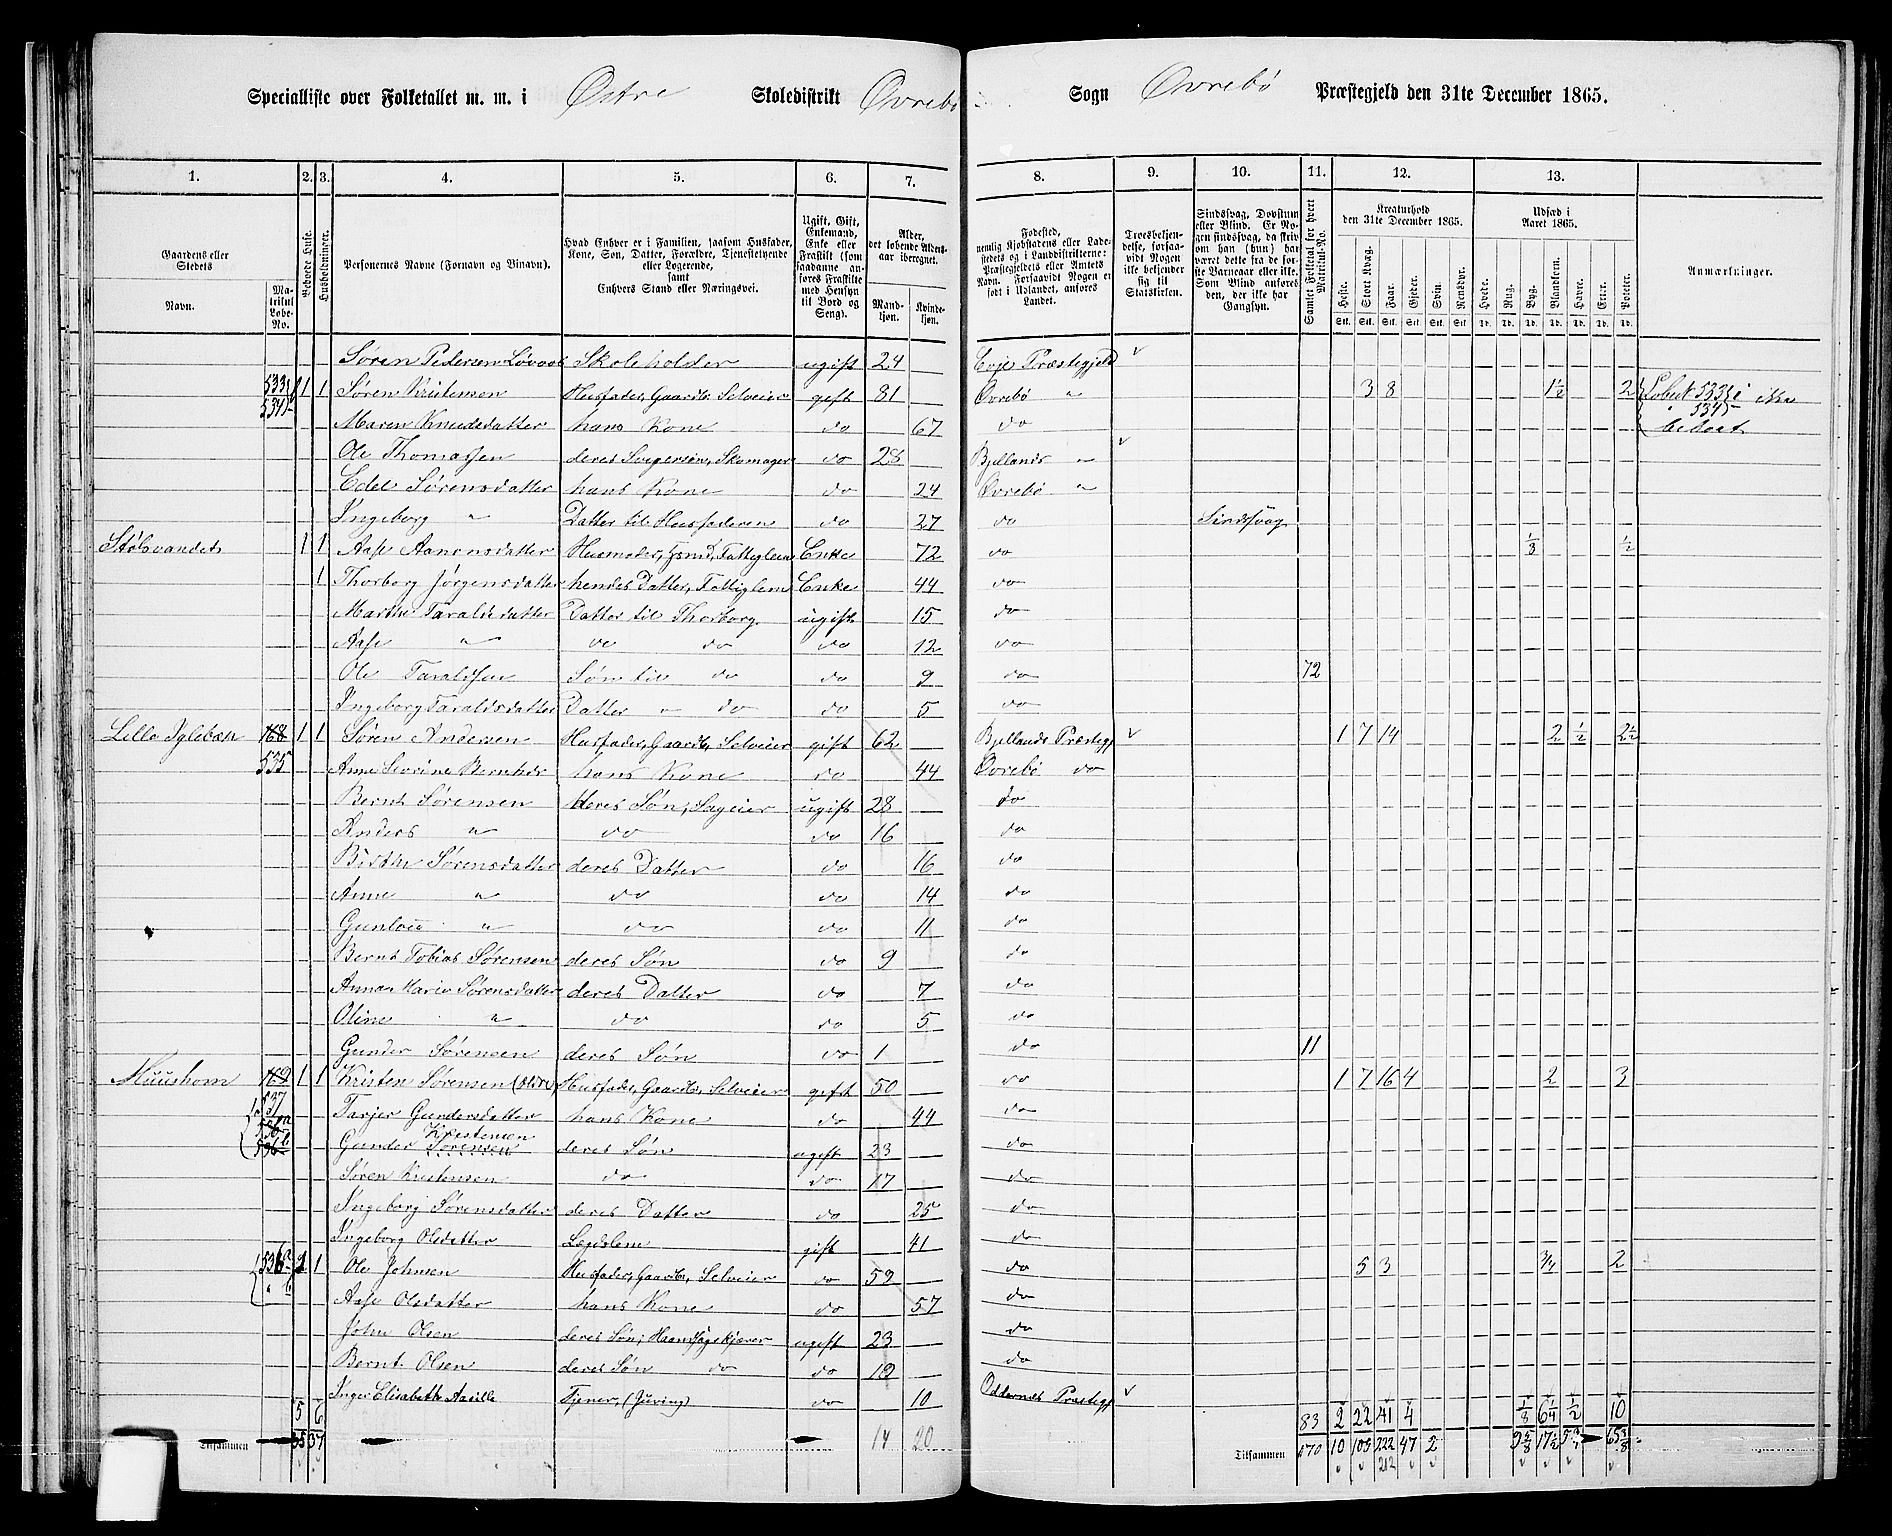 Specialliste over Folketallet m. m. i Østre Skoledistrikt Øvrebø Sogn Øvrebø Præstegjeld den 31te December 1865.
1. 2. 3. 4. 5. 6. 7. 8. 9. 10. 11. 12. 13.
Gaardens eller Stedets
Navn.
Matrikul Løbe-No.
Beboede Huse.
Husholdninger.
Personernes Navne (Fornavn og Binavn).
Hvad Enhver er i Familien, saasom Husfader, Kone, Søn, Datter, Forældre, Tjenestetyende eller Logerende, samt Enhvers Stand eller Næringsvei.
Ugift, Gift, Enkemand, Enke eller Fraskilt (som saadanne anføres Fraskilte med Hensyn til Bord og Seng).
Alder, det løbende Aldersaar iberegnet.
Mandkjøn. Kvindekjøn.
Fødested, nemlig Kjøbstadens eller Ladestedets og i Landdistrikterne: Præstegjeldets eller Amtets Navn. Forsaavidt Nogen er født i Udlandet, anføres Landet.
Troesbekjendelse, forsaavidt Nogen ikke bekjender sig til Statskirken.
Sindssvag, Døvstum eller Blind. Er Nogen sindssvag, da skriv om han (hun) har været dette fra de første Barneaar eller ikke. Som Blind anføres den, der ikke har Gangsyn.
Samlet Folketal for hvert Matrikul-No.
Kreaturhold den 31te December 1865.
Heste. Stort Kvæg. Faar. Gjeder. Svin. Rensdyr.
Udsæd i Aaret 1865.
Hvede. Rug. Byg. Blandkorn. Havre. Erter. Poteter.
Anmærkninger.
Søren Pedersen Skoleholder ugift 24 Evje Præstegjeld
533 534 1 1 Søren Kristensen Husfader, Gaardb, Selveier gift 81 Øvrebø " 3 8 1½ 2
Maren Knudsdatter hans Kone do 67 do
Ole Thomassen deres Svigersøn, Skomager do 28 Bjellands "
Edel Sørensdatter hans Kone do 24 Øvrebø "
Ingeborg " Datter til Husfaderen do 27 do Sindssvag
Stølsvandet 1 1 Aase Aanensdatter Enke 72 do ⅛ ½
1 Thorborg Jørgensdatter hendes Datter, Fattiglem Enke 44 do
Marthe Taraldsdatter Datter til Thorborg ugift 15 do
Aase " do do do 12 do
Ole Taraldsen Søn til do do 9 do 72
Ingeborg Taraldsdatter Datter " do do 5 do
Lille Iglebæk 168 1 1 Søren Andersen Husfader, Gaardb, Selveier gift 62 Bjellands Præstegj 1 7 14 2 ½ 2½
535 Anne Severine hans Kone do 44 Øvrebø do
Bernt Sørensen deres Søn, ugift 28 do
Anders " do do 16 do
Birthe Sørensdatter deres Datter do 16 do
Anne " do do 14 do
" do do 11 do
Bernt Tobias Sørensen deres Søn do 9 do
Anna Marie Sørensdatter deres Datter do 7 do
Oline " do do 5 do
Gunder Sørensen deres Søn do 1 do 11
Muushom 169 1 1 Kristen Sørensen Husfader, Gaardb, Selveier gift 50 do 1 7 16 4 2 3
537 Tarjer Gundersdatter hans Kone do 44 do
Kristensen
536 b Gunder Sørensen deres Søn ugift 23 do
Søren Kristensen do do 17 do
Ingeborg Sørensdatter deres Datter do 25 do
Ingeborg Olsdatter Lægdslem gift 41 do
536 2 1 Ole Johnsen Husfader, Gaardb, Selveier do 59 do 5 3 ¾ 2
Aase Olsdatter hans Kone do 57 do
John Olsen deres Søn, ugift 23 do
Bernt Olsen deres Søn do do 19 do
Inger Elisabeth Tjener, do 10 Oddernes Præstegj
5 6 83 2 22 41 4 ⅛ 6¼ ½ 10
Tilsammen 35 37 14 20 Tilsammen 470 10 105 222 47 2 17½
212